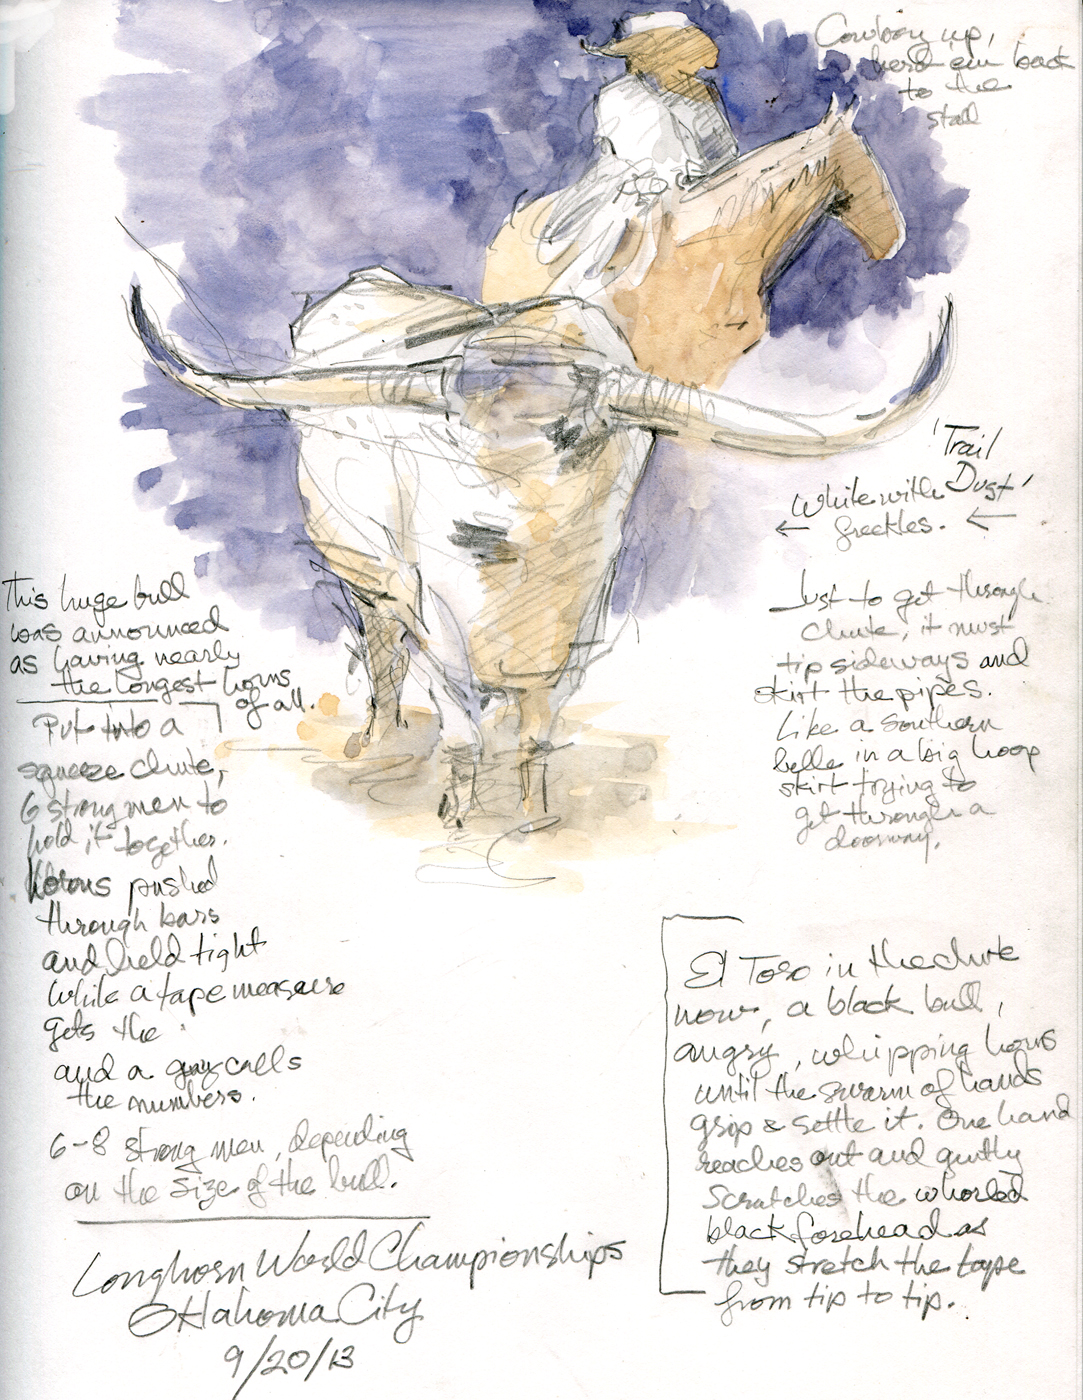 Cowboy up,
herd 'em back
to the
stall
'Trail
Dust'
White with
freckles.
This huge bull
was announced
as having nearly
the longest horns
of all.
Put into a
squeeze chute,
6 strong men to
hold it together.
Horns pushed
through bars
and held tight
while a tape measure
gets the
and a guy calls
the numbers.
6-8 strong men, depending
on the size of the bull.
Longhorn World Championships
Oklahoma City
9/20/13
Just to get through
chute, it must
tip sideways and
skirt the pipes.
Like a southern
belle in a big hoop
skirt trying to
get through a
doorway.
El Toro in the chute
now, a black bull,
angry, whipping horns
until the swarm of hands
grip & settle it. One hand
reaches out and gently
scratches the whorled
black forehead as
they stretch the tape
from tip to tip.